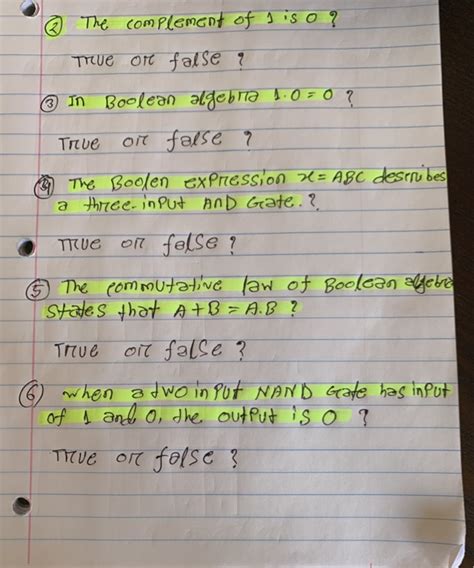 ② The complement of 1 is 0 ?
True or false ?
③ In Boolean algebra 1.0 = 0 ?
True or false ?
④ The Boolen expression x = ABC describes
a three-input AND Gate. ?
True or false ?
⑤ The commutative law of Boolean algebra
states that A+B = A.B ?
True or false ?
⑥ when a two input NAND Gate has input
of 1 and 0, the output is 0 ?
True or false ?